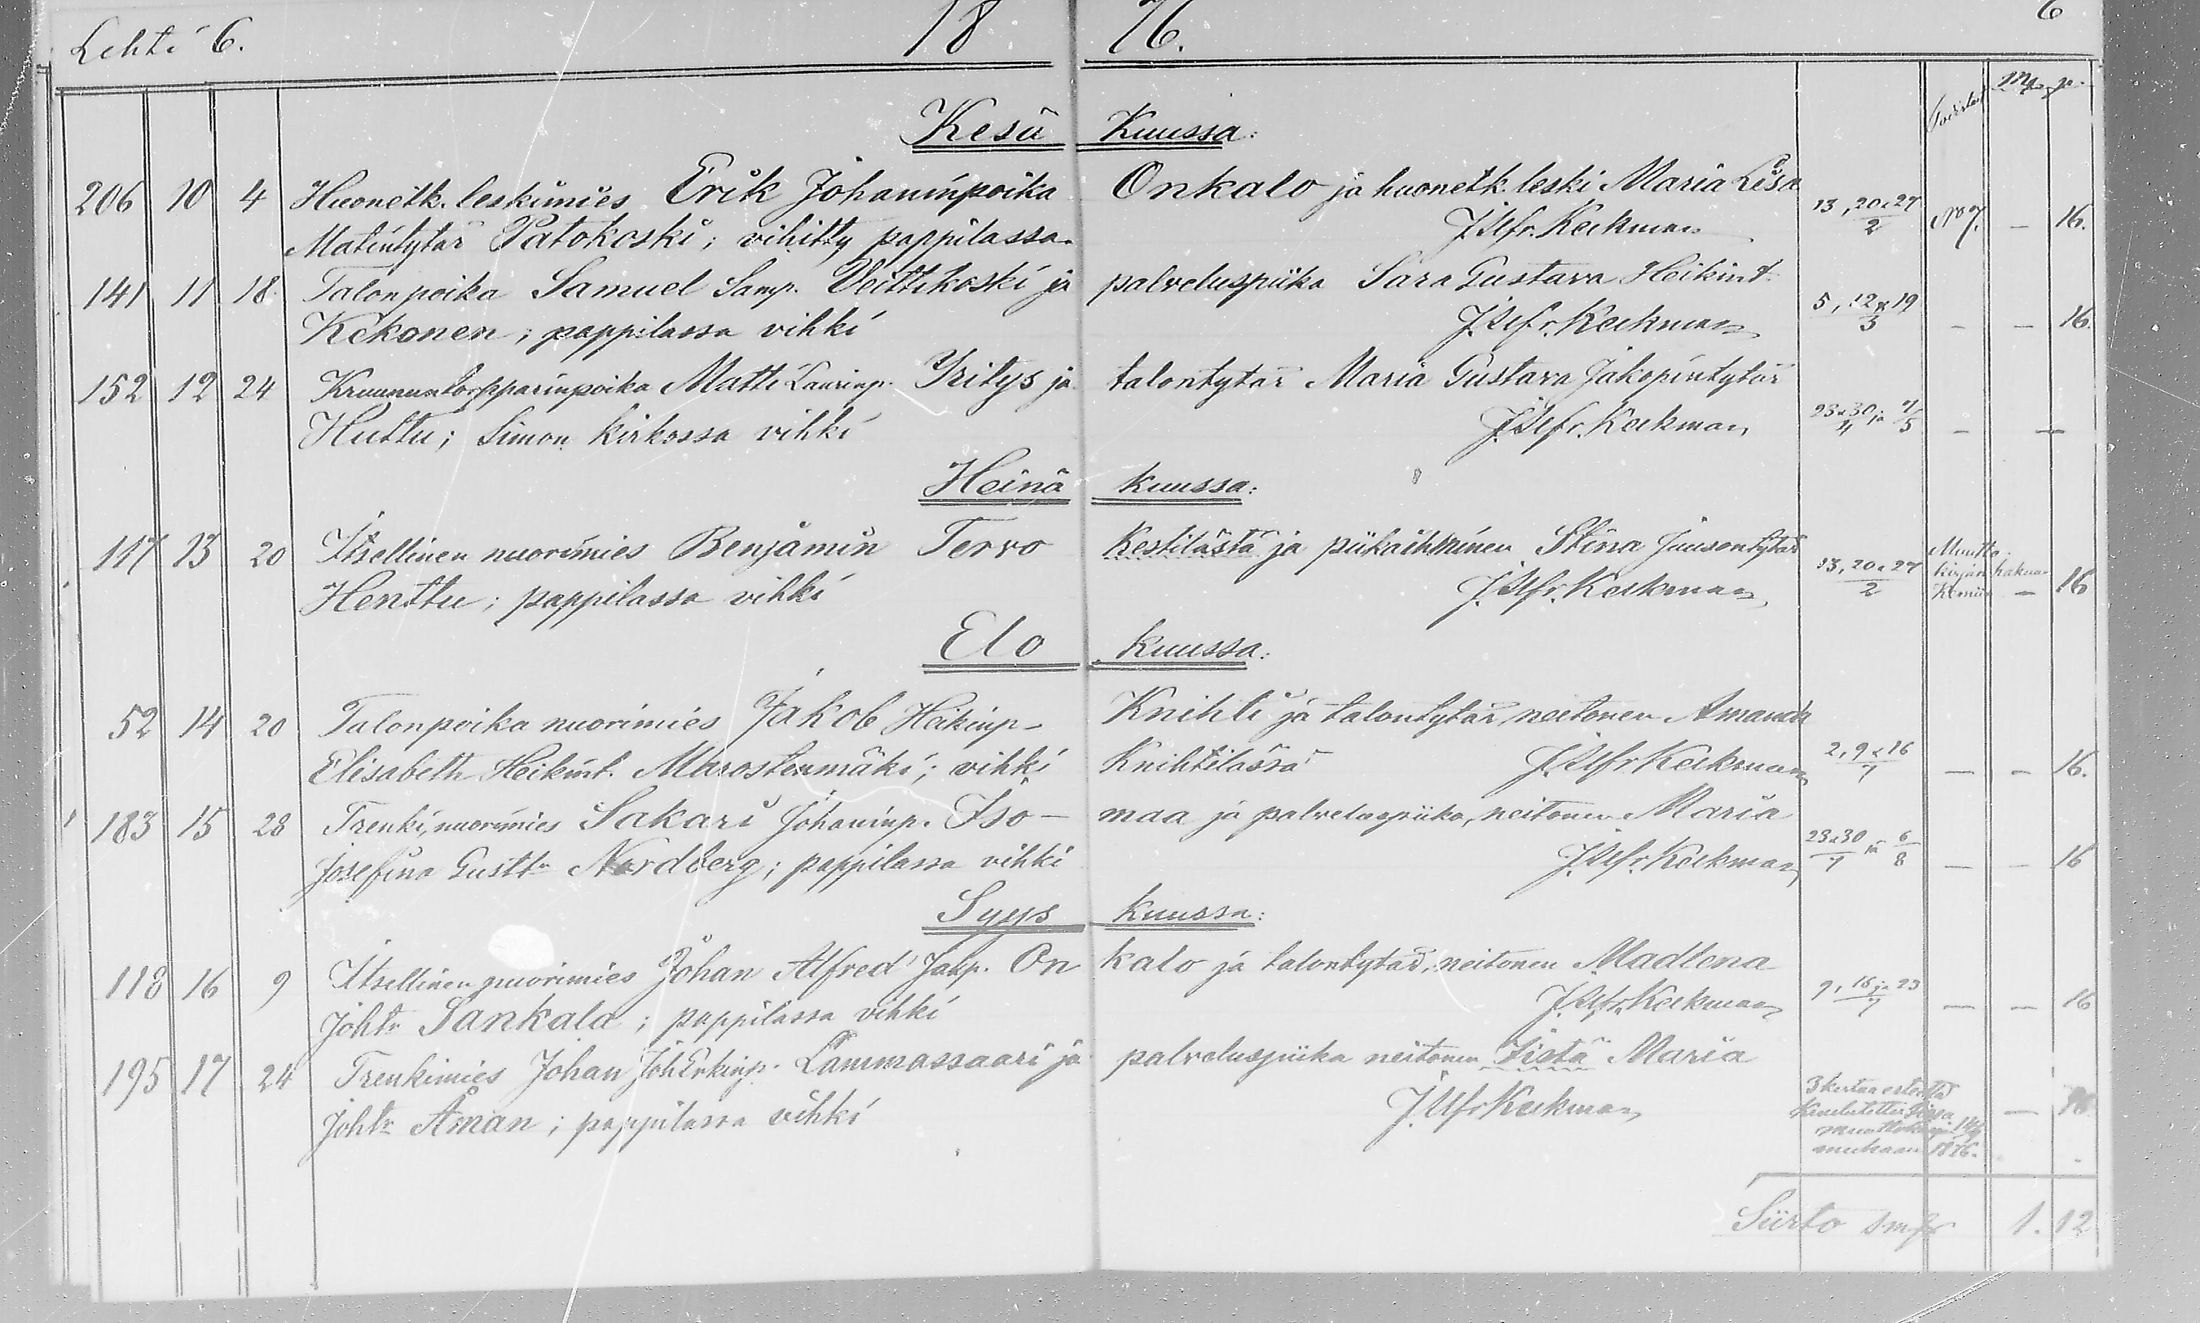 Lehti 6. 1876. 6
Todistus Mk p.
Kesä Kuussa:
206 10 4 Huonetk. leskimies Erik Johaninpoika Onkalo ja huonetk. leski Maria Lisa
Matintytär Patokoski; vihitty pappilassa. J. Alfr. Keckman 13, 20 & 27/2 N:o 7. – 16.
141 11 18 Talonpoika Samuel Samp. Veittikoski ja palveluspiika Sara Gustava Heikint.
Kekonen; pappilassa vihki J. Alfr. Keckman 5, 12 & 19/3 – – 16.
152 12 24 Kruununtorpparinpoika Matti Laurinp. Yritys ja talontytär Maria Gustava Jakopintytär
Huttu; Simon kirkossa vihki J. Alfr. Keckman 23 & 30/4 ja 7/5 – –
Heinä kuussa:
117 13 20 Itsellinen nuorimies Benjamin Tervo Kestilästä ja piikaihminen Stina Juusontytär
Henttu; pappilassa vihki J. Alfr. Keckman 13, 20 & 27/2 Muutto-
kirjan hakuun
Kemiin – 16
Elo kuussa:
52 14 20 Talonpoika nuorimies Jakob Heikinp. Knihti ja talontytär, neitonen Amanda
Elisabeth Heikint. Marostenmäki; vihki Knihtilässä J. Alfr. Keckman 2, 9 & 16/7 – – 16.
183 15 28 Trenki, nuorimies Sakari Johaninp. Iso- maa ja palveluspiika, neitonen Maria
Josefina Gusttr Nordberg; pappilassa vihki J. Alfr. Keckman 23 & 30/7 ja 6/8 – – 16
Syys kuussa:
118 16 9 Itsellinen nuorimies Johan Alfred Jakp. On kalo ja talontytär, neitonen Madlena
Johtr Sankala; pappilassa vihki J. Alfr. Keckman 9, 16 ja 23/7 – – 16
195 17 24 Trenkimies Johan Joh Erkinp. Lammassaari ja palveluspiika neitonen Iista Maria
Johtr Åman; pappilassa vihki J. Alfr Keckman 3 kertaa esteettä
kuulutettu Iissa
muuttokirj. 14/9
mukaan 1876. – 16
Siirto Smk 1. 12